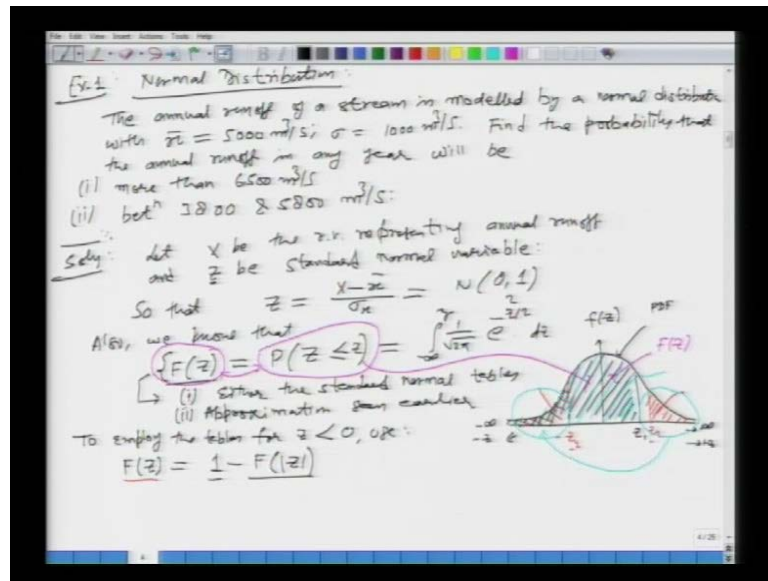 File Edit View Insert Actions Tools Help
Ex-1: Normal Distribution:
The annual runoff of a stream is modelled by a normal distribution
with x̄ = 5000 m³/s; σ = 1000 m³/s. Find the probability that
the annual runoff in any year will be
(i) more than 6500 m³/s
(ii) betⁿ 3800 & 5800 m³/s.
Soln: Let X be the r.v. representing annual runoff
and z be standard normal variable:
So that z = (x - x̄)/σx = N(0,1)
Also, we know that
{F(z) = P(Z ≤ z) = ∫ -∞ z 1/√2π e^(-z²/2) dz
(i) Either the standard normal tables
(ii) Approximation seen earlier
To employ the tables for z < 0, use:
F(z) = 1 - F(|z|)
f(z)
PDF
F(z)
-∞ -z z, +∞
4/25